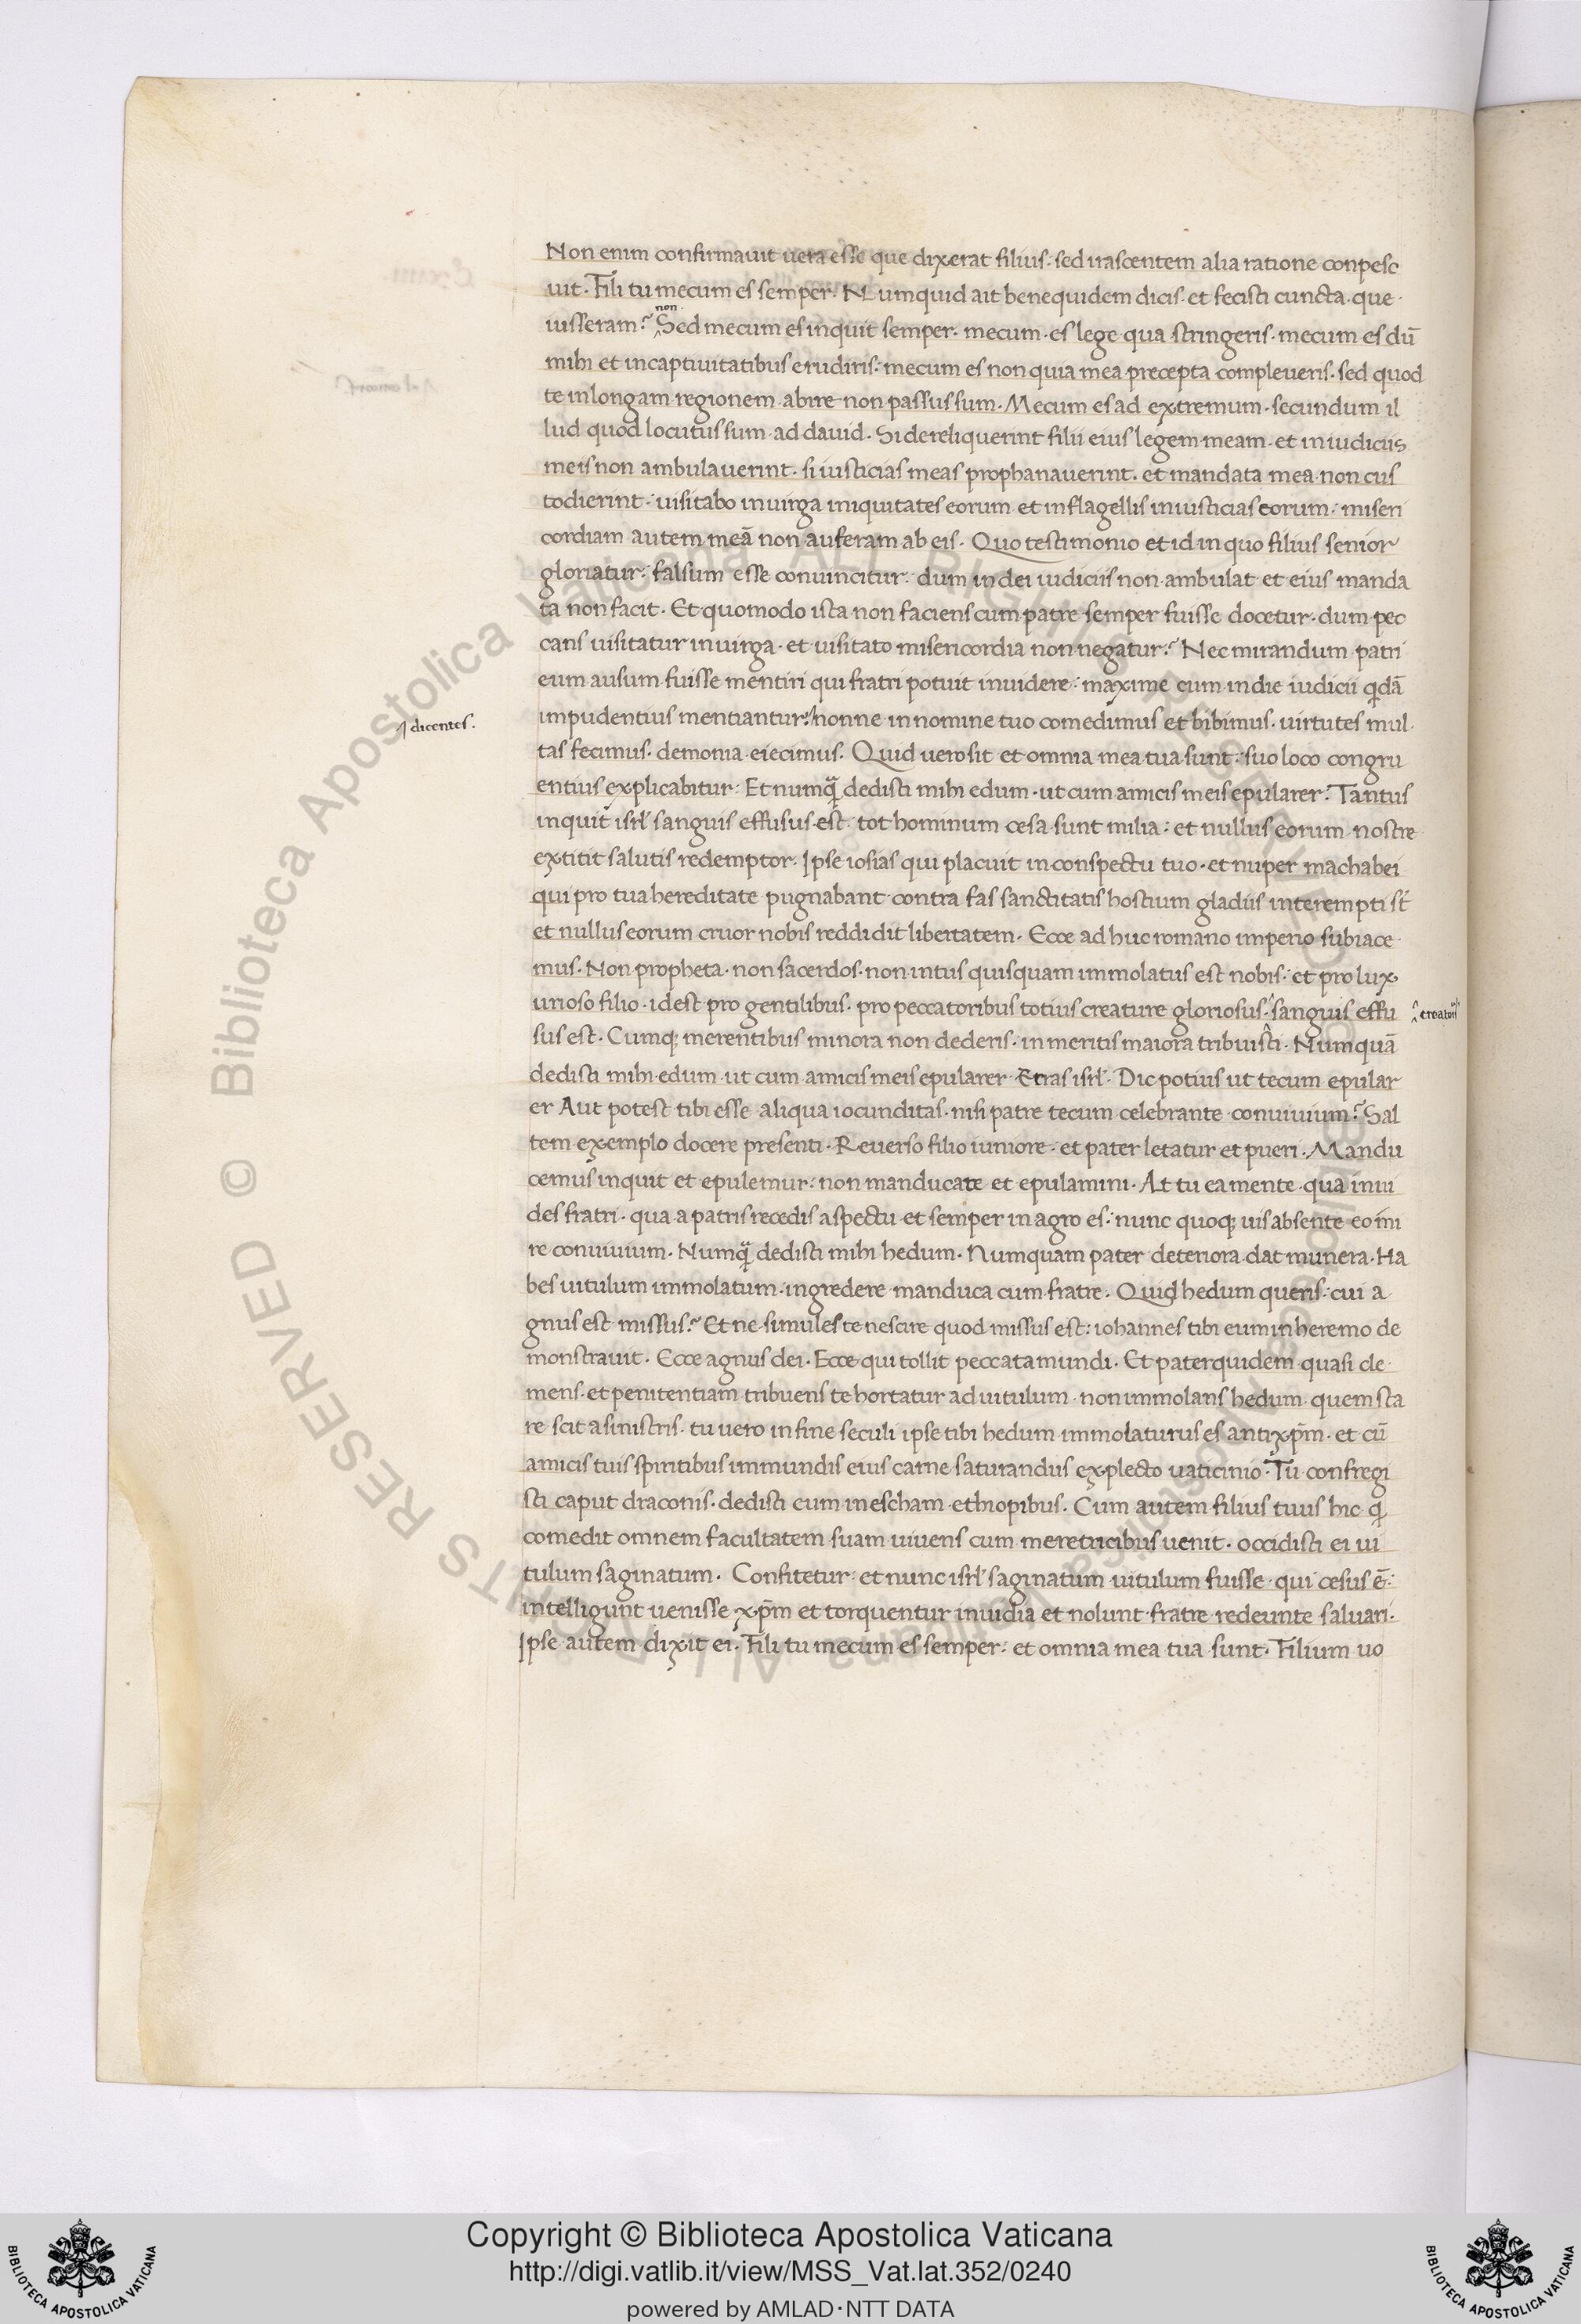 Non enim confirmavit uera esse que dixerat filius: sed irascentem alia ratione conpesc
uit. Fili tu mecum es semper. Numquid ait bene quidem dicis et fecisti cuncta que
iusseram? non Sed mecum es inquit semper. mecum es lege qua stringeris. mecum es dū
mihi et in captiuitatibus erudiris: mecum es non quia mea precepta compleueris. sed quod
te in longam regionem abire non passus sum. Mecum es ad extremum. secundum il
lud quod locutus sum ad dauid. Si dereliquerint filii eius legem meam. et in iudiciis
meis non ambulauerint. si iusticias meas prophanauerint. et mandata mea non cus
todierint: uisitabo in uirga iniquitates eorum et in flagellis iniusticias eorum: miseri
cordiam autem meā non auferam ab eis. Quo testimonio et id in quo filius senior
gloriatur: falsum esse conuincitur: dum in dei iudiciis non ambulat et eius manda
ta non facit. Et quomodo ista non faciens cum patre semper fuisse docetur. dum pec
cans uisitatur in uirga. et uisitato misericordia non negatur? Nec mirandum patri
eum ausum fuisse mentiri qui fratri potuit inuidere: maxime cum in die iudicii qdā
dicentes.
impudentius mentiantur: nonne in nomine tuo comedimus et bibimus. uirtutes mul
tas fecimus. demonia eiecimus. Quid uero sit et omnia mea tua sunt: suo loco congru
entius explicabitur: Et numq̄ dedisti mihi edum. ut cum amicis meis epularer. Tantus
inquit isrl̄ sanguis effusus est: tot hominum cesa sunt milia: et nullus eorum nostre
extitit salutis redemptor. Ipse iosias qui placuit in conspectu tuo. et nuper machabei
qui pro tua hereditate pugnabant contra fas sanctitatis hostium gladiis interempti st̄
et nullus eorum cruor nobis reddidit libertatem. Ecce ad huc romano imperio subiace
mus. Non propheta. non sacerdos. non intus quisquam immolatus est nobis: et pro lux
urioso filio. id est pro gentilibus. pro peccatoribus totius creature gloriosus. sanguis effu
sus est. Cumq; merentibus minora non dederis. in meritis maiora tribuisti. Numquā
dedisti mihi edum ut cum amicis meis epularer Erras isrl̄. Dic potius ut tecum epular
er Aut potest tibi esse aliqua iocunditas. nisi patre tecum celebrante conuiuium? Sal
tem exemplo docere presenti. Reuerso filio iuniore: et pater letatur et pueri. Mandu
cemus inquit et epulemur: non manducate et epulamini. At tu ea mente qua inui
des fratri. qua a patris recedis aspectu et semper in agro es: nunc quoq; uis absente eo ini
re conuiuium. Numq̄ dedisti mihi hedum. Numquam pater deteriora dat munera. Ha
bes uitulum immolatum. ingredere manduca cum fratre. Quid hedum queris: cui a
gnus est missus? Et ne simules te nescire quod missus est: iohannes tibi eum in heremo de
monstrauit. Ecce agnus dei. Ecce qui tollit peccata mundi. Et pater quidem quasi cle
mens. et penitentiam tribuens te hortatur ad uitulum non immolans hedum. quem sta
re scit a sinistris. tu uero in fine seculi ipse tibi hedum immolaturus es antixp̄m. et cū
amicis tuis spiritibus immundis eius carne saturandus explecto uaticinio. Tu confregi
sti caput draconis. dedisti eum in escham ethiopibus. Cum autem filius tuus hic q
comedit omnem facultatem suam uiuens cum meretricibus uenit. occidisti ei ui
tulum saginatum. Confitetur et nunc isrl̄ saginatum uitulum fuisse qui cesus ē:
intelligunt uenisse xp̄m et torquentur inuidia et nolunt fratre redeunte saluari.
Ipse autem dixit ei. Fili tu mecum es semper: et omnia mea tua sunt. Filium uo
© Biblioteca Apostolica Vaticana ALL RIGHTS RESERVED
Copyright © Biblioteca Apostolica Vaticana
http://digi.vatlib.it/view/MSS_Vat.lat.352/0240
powered by AMLAD·NTT DATA
BIBLIOTECA APOSTOLICA VATICANA
BIBLIOTECA APOSTOLICA VATICANA